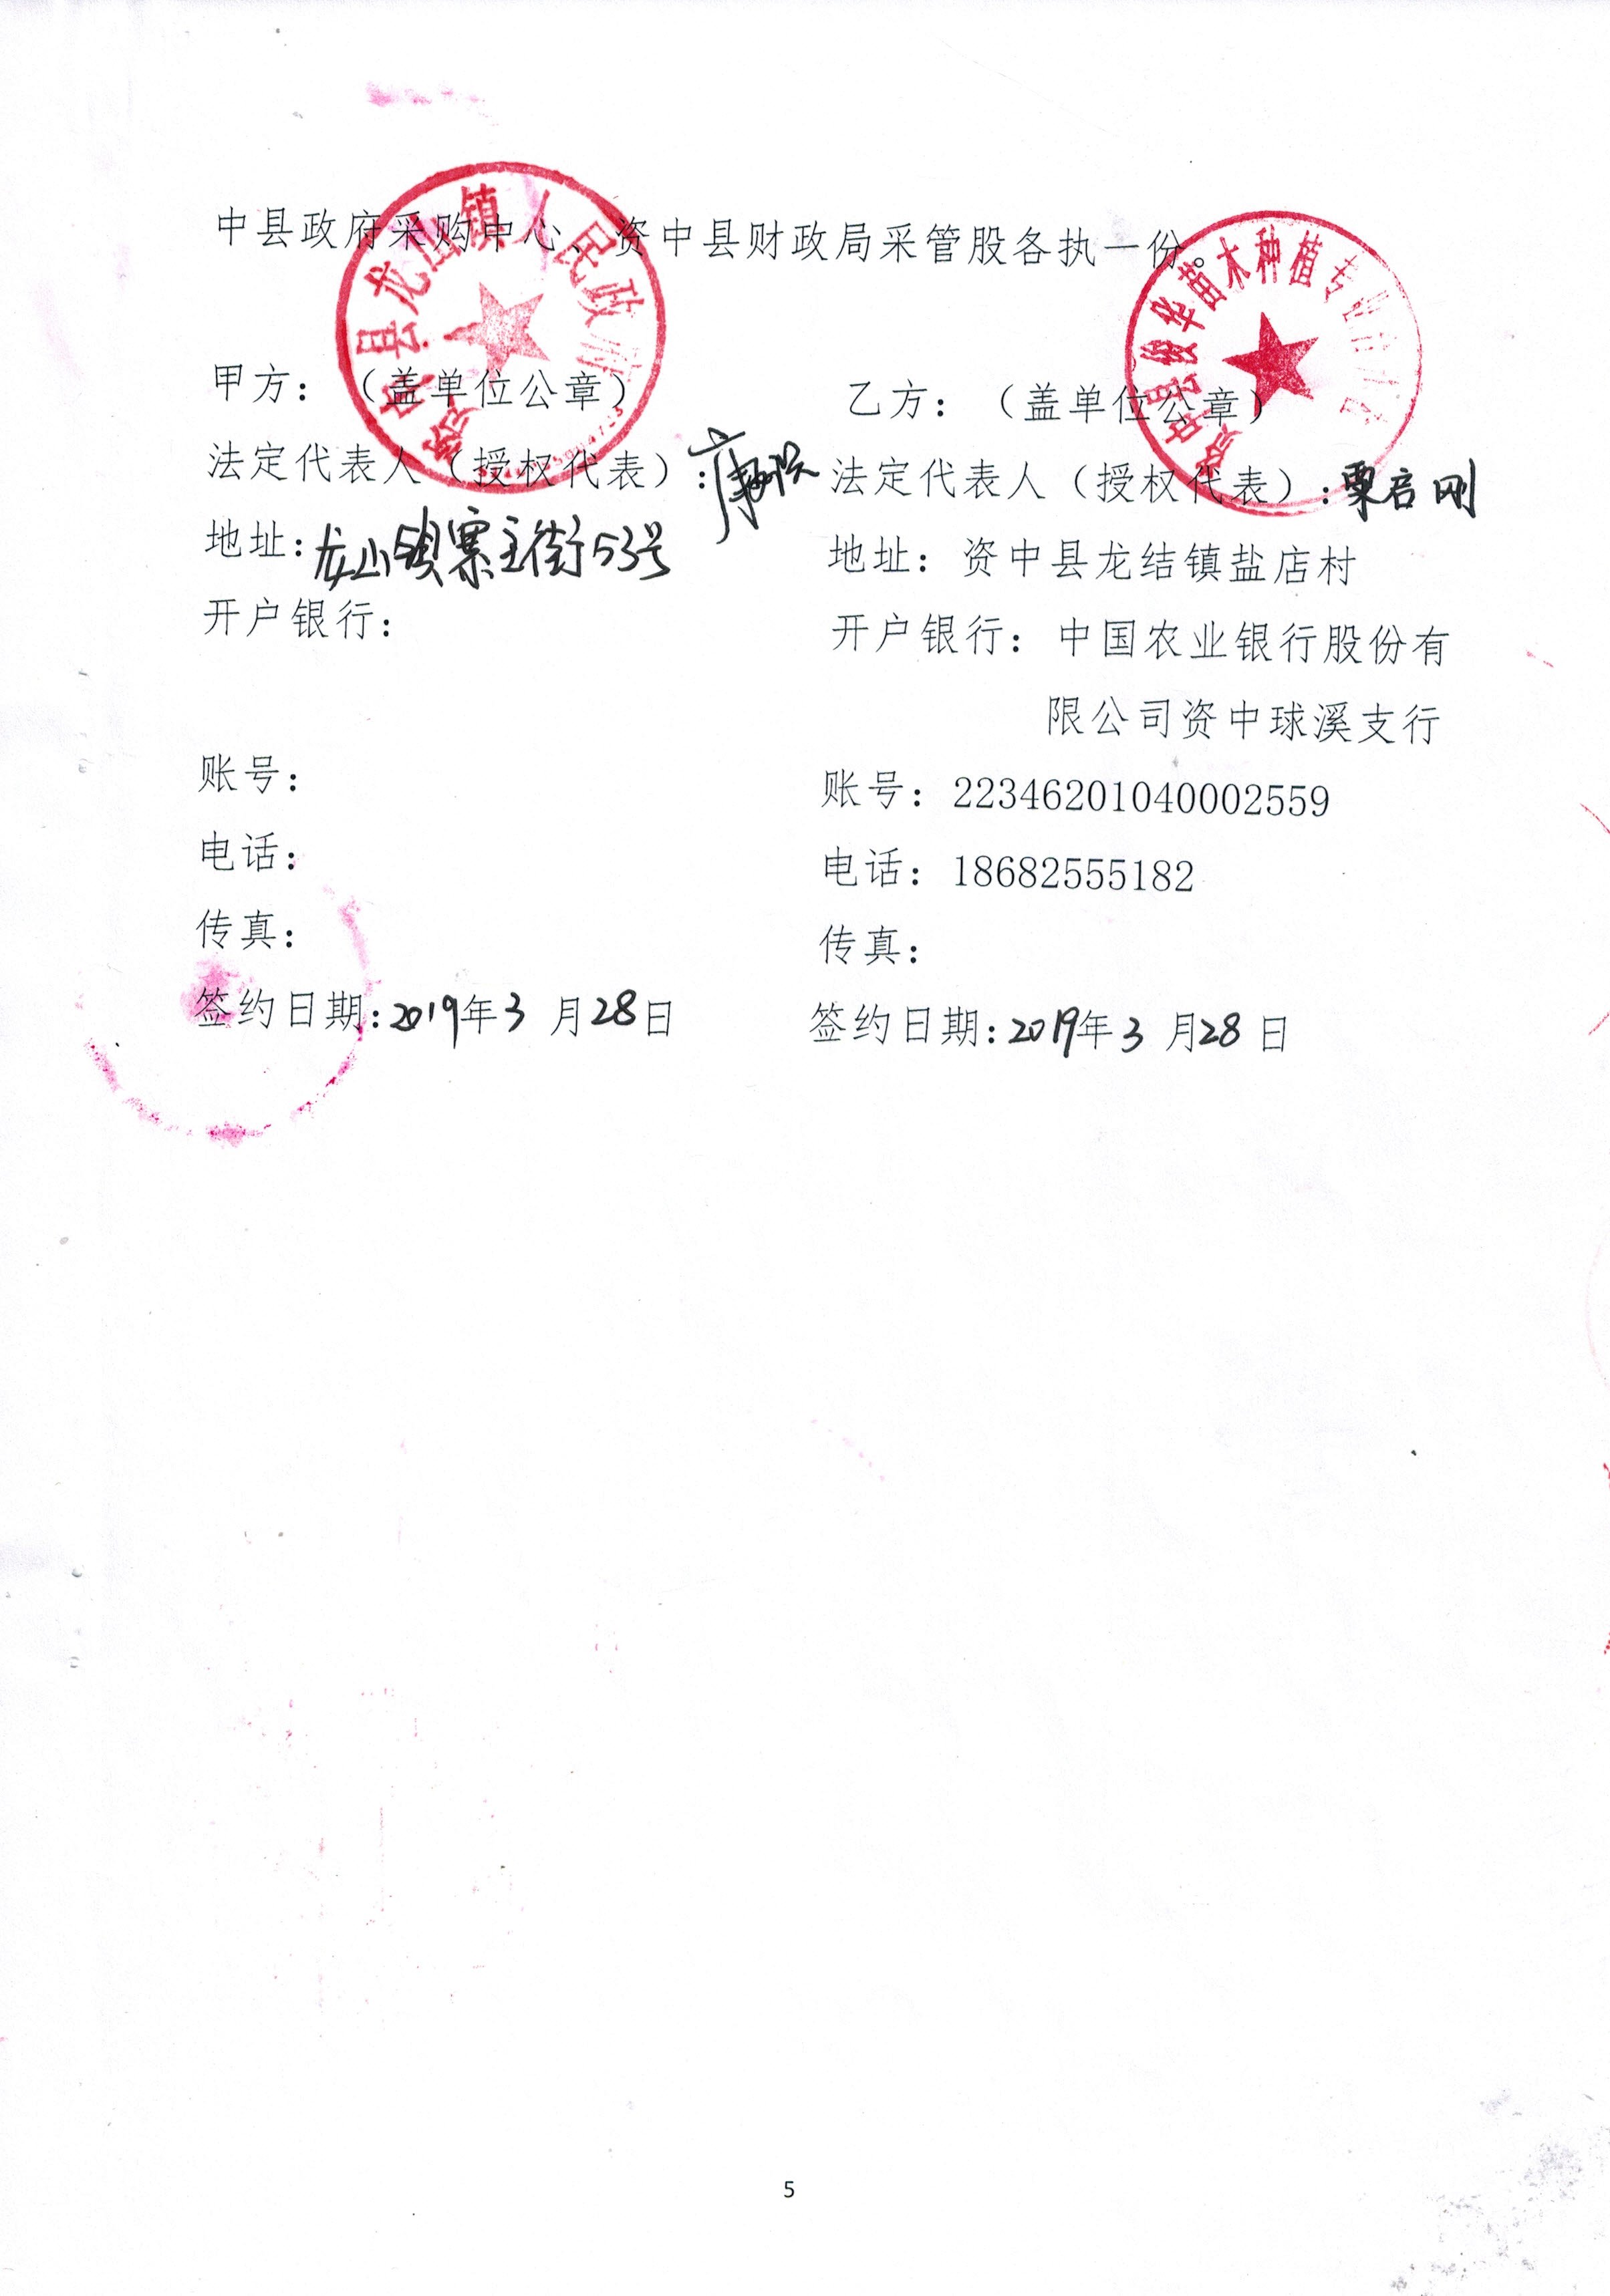 中县政府采购中心、资中县财政局采管股各执一份。
资中县龙山镇人民政府
资中县俊华苗木种植专业合作社
甲方：（盖单位公章）
法定代表人（授权代表）：
地址：龙山镇寨主街53号
开户银行：
账号：
电话：
传真：
签约日期：2019年3月28日
乙方：（盖单位公章）
法定代表人（授权代表）：栗启刚
地址：资中县龙结镇盐店村
开户银行：中国农业银行股份有
限公司资中球溪支行
账号：22346201040002559
电话：18682555182
传真：
签约日期：2019年3月28日
5